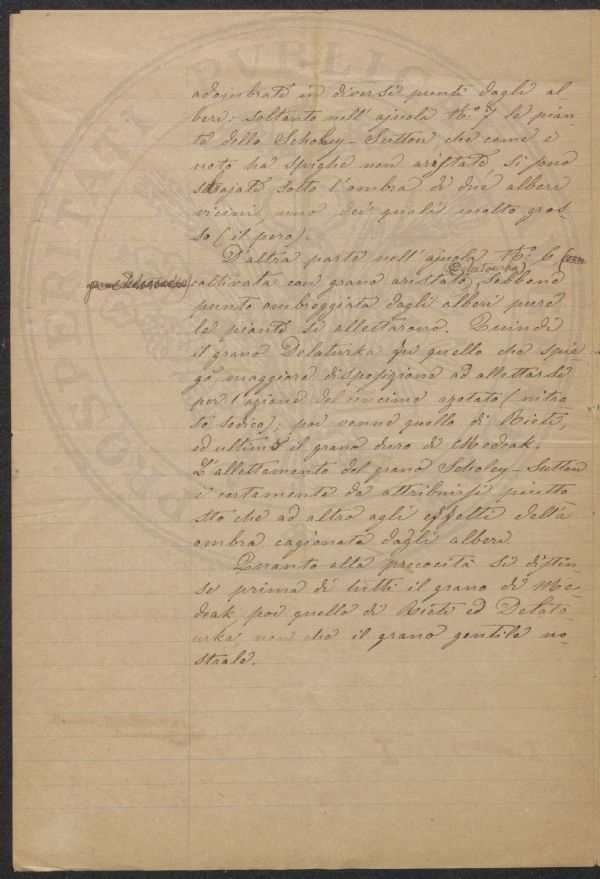 adombrate in diversi punti dagli al
beri: soltanto nell' ajuola No. 7 le pian-
te dello Scholey-Sutton che come è
noto ha spighe non aristate si sono
sdrajate sotto l'ombra di due alberi
vicini, uno dei quali molto gros-
so (il pero).
D'altra parte nell' ajuola No. 6
coltivata con grano aristato Delatourka, sebbene
punto ombreggiata dagli alberi pure
le piante si allettarono. Quindi
il grano Delaturka fu quello che spie-
gò maggiore disposizione ad allettarsi
per l'azione del concime azotato (nitra-
to sodico); poi venne quello di Rieti,
ed ultimo il grano duro di Medeak.
L'allettamento del grano Scholey-Sutton
è certamente da attribuirsi piutto
sto che ad altro agli effetti della
ombra cagionata dagli alberi.
Quanto alla precocità si distin-
se prima di tutti il grano di Me-
deak, poi quello di Rieti ed Delato-
urka, non che il grano gentile no-
strale.
PVBLIC